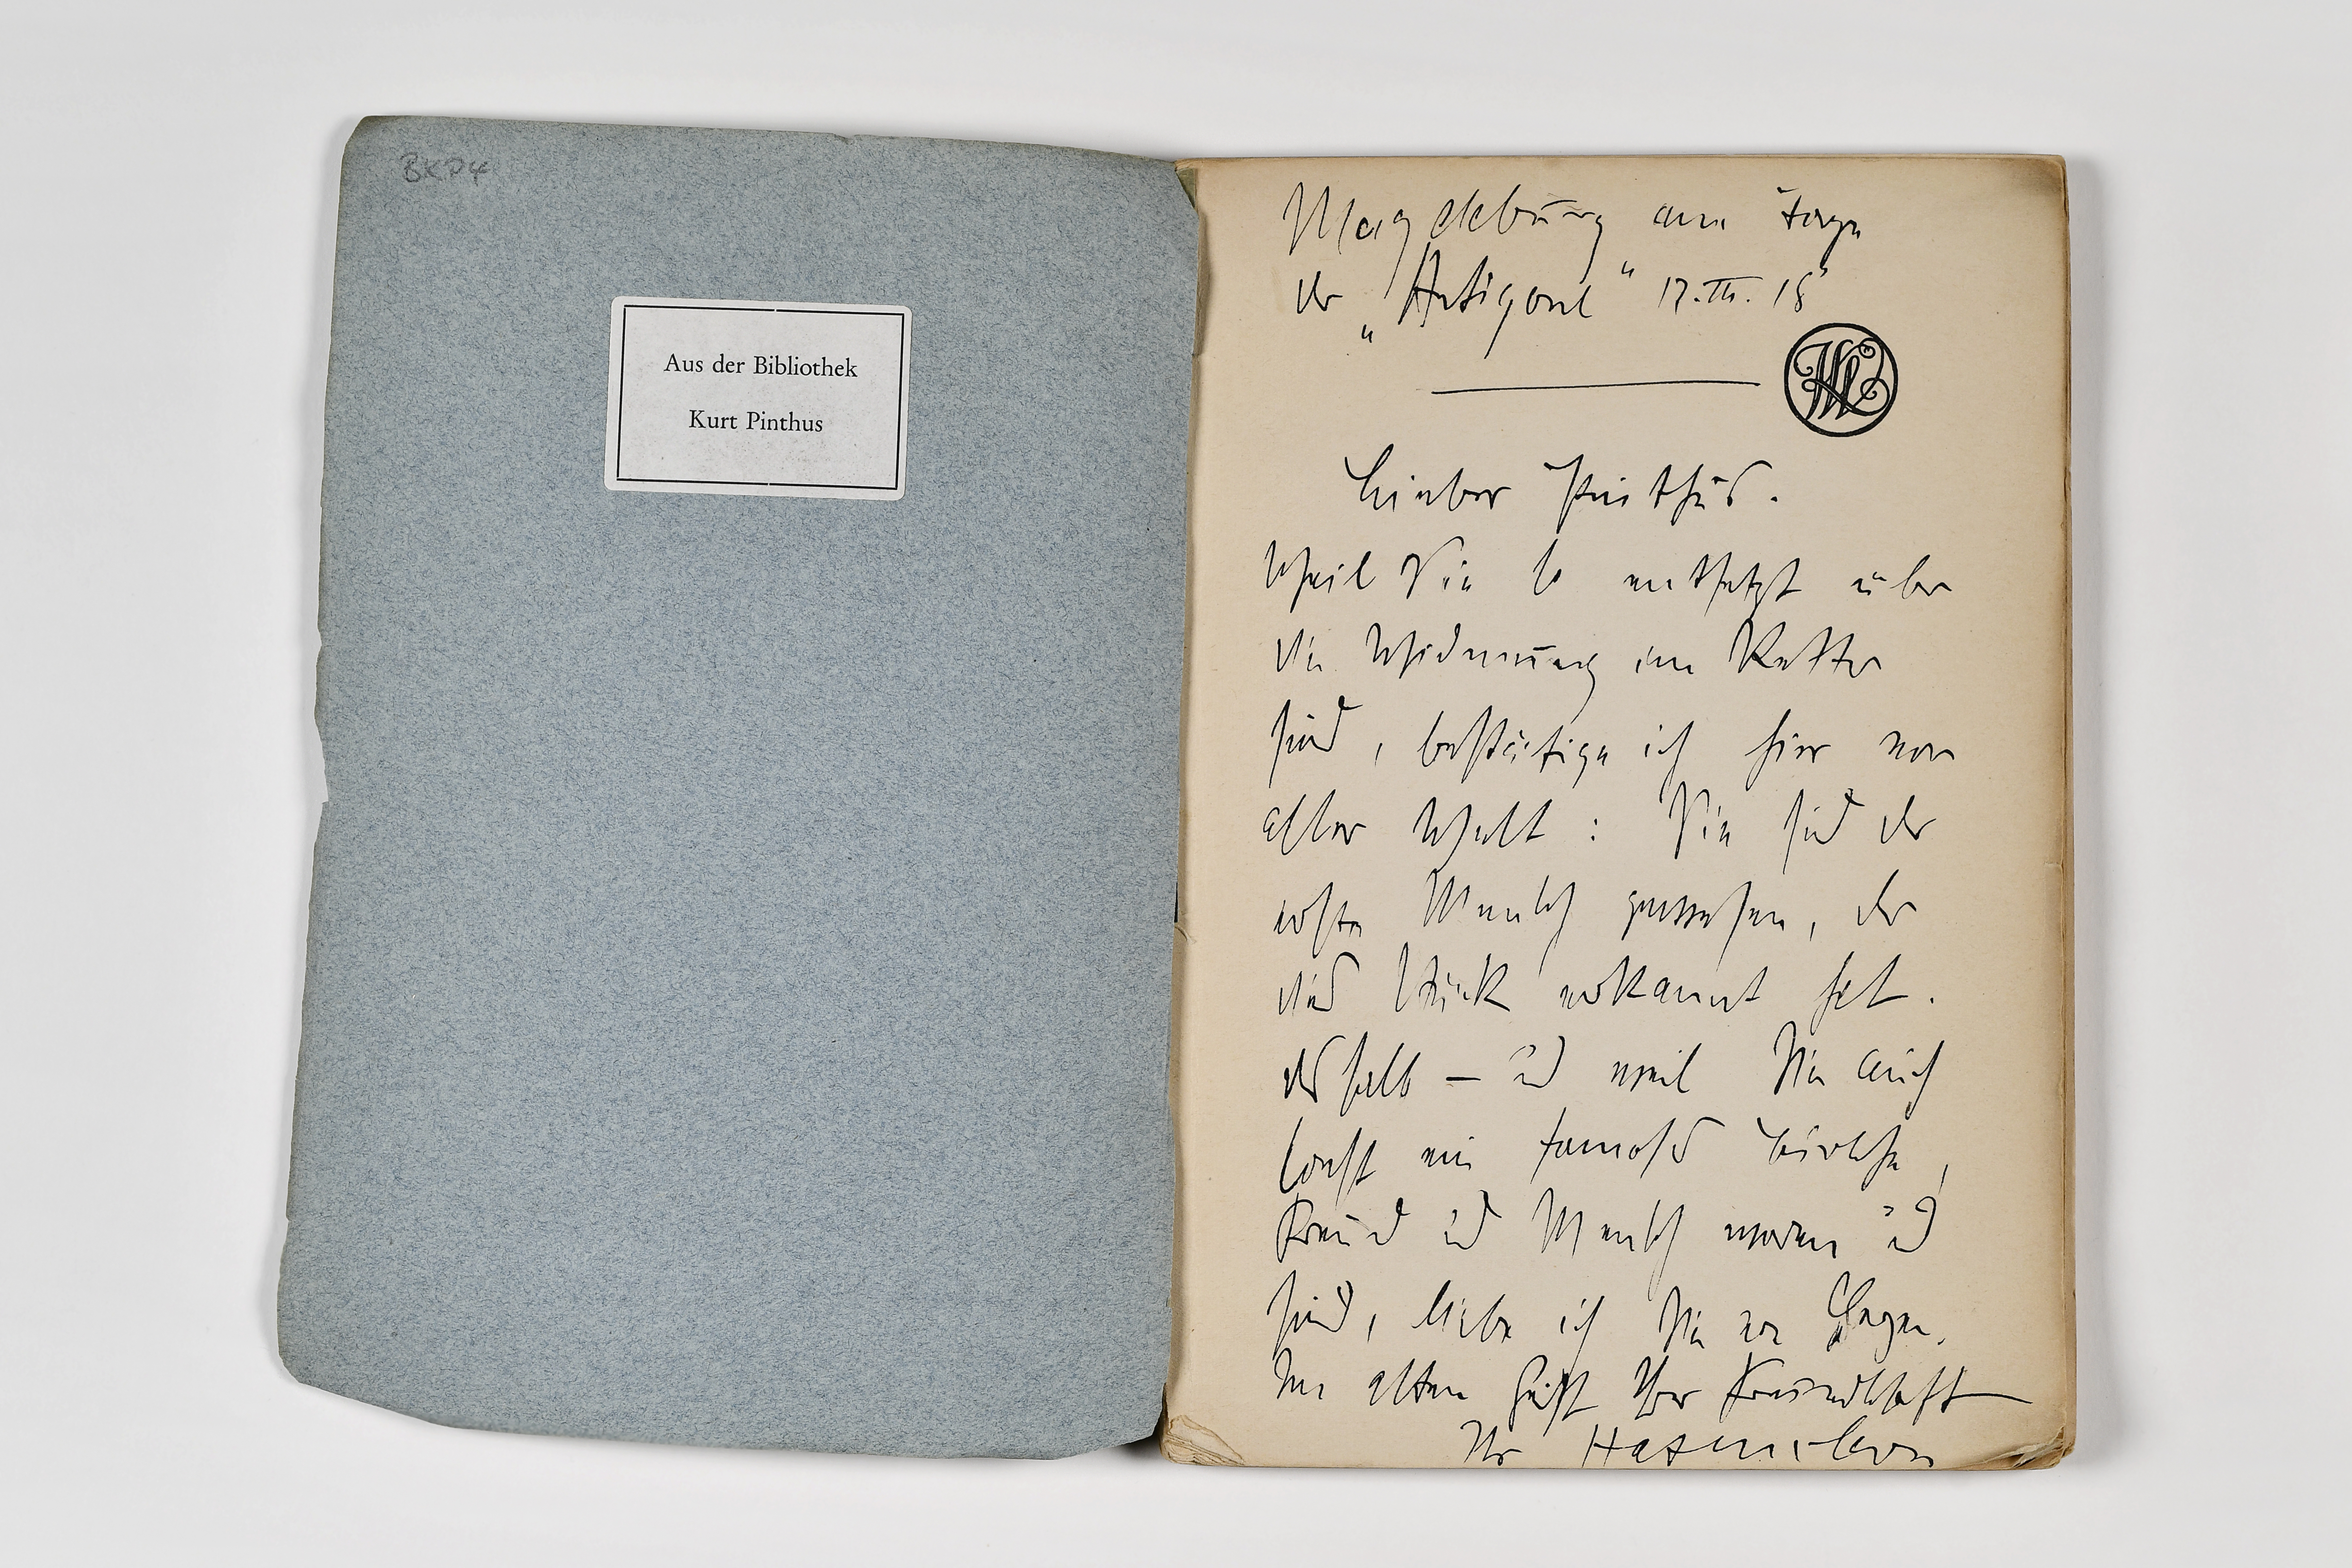 BKP4
Aus der Bibliothek
Kurt Pinthus
Magdeburg am Tage
der „Antigone“ 17.III.18
Lieber Pinthus.
Weil Sie so entsetzt über
die Widmung im Retter
sind, bestätige ich hier vor
aller Welt: Sie sind der
erste Mensch gewesen, der
dies Stück erkannt hat.
deshalb – und weil Sie auch
sonst ein famoser Bursche,
Freund und Mensch waren und
sind, liebe ich Sie von
Im alten Geist Ihrer Freundschaft
Ihr Hasenclever